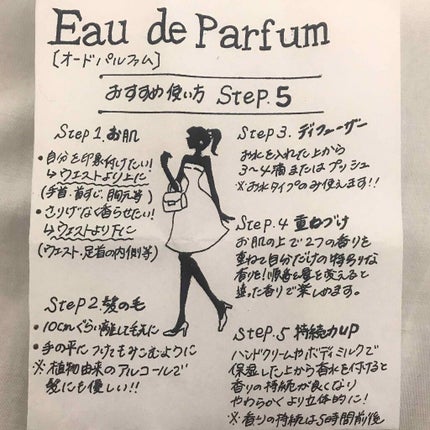 Eau de Parfum
[オードパルファム]
おすすめ使い方 Step.5
Step1.お肌
・自分を印象付けたい!
↳ウエストより上に
(手首、首すじ、胸元等)
・さりげなく香らせたい!
↳ウエストより下に
(ウエスト、足首の内側等)
Step2.髪の毛
・10cmぐらい離して毛先に
・手の平につけてもみこむように
※植物由来のアルコールで
髪にも優しい!!
Step3.ディフューザー
お水を入れた上から
3〜4滴またはプッシュ
※お水タイプのみ使えます!!
Step.4 重ねづけ
お肌の上で2つの香りを
重ねて自分だけの特別な
香りを!順番を量を変えると
違った香りで楽しめます。
Step.5 持続力UP
ハンドクリームやボディミルクで
保湿した上から香水を付けると
香りの持続が良くなり
やわらかくより立体的に!
※香りの持続は5時間前後